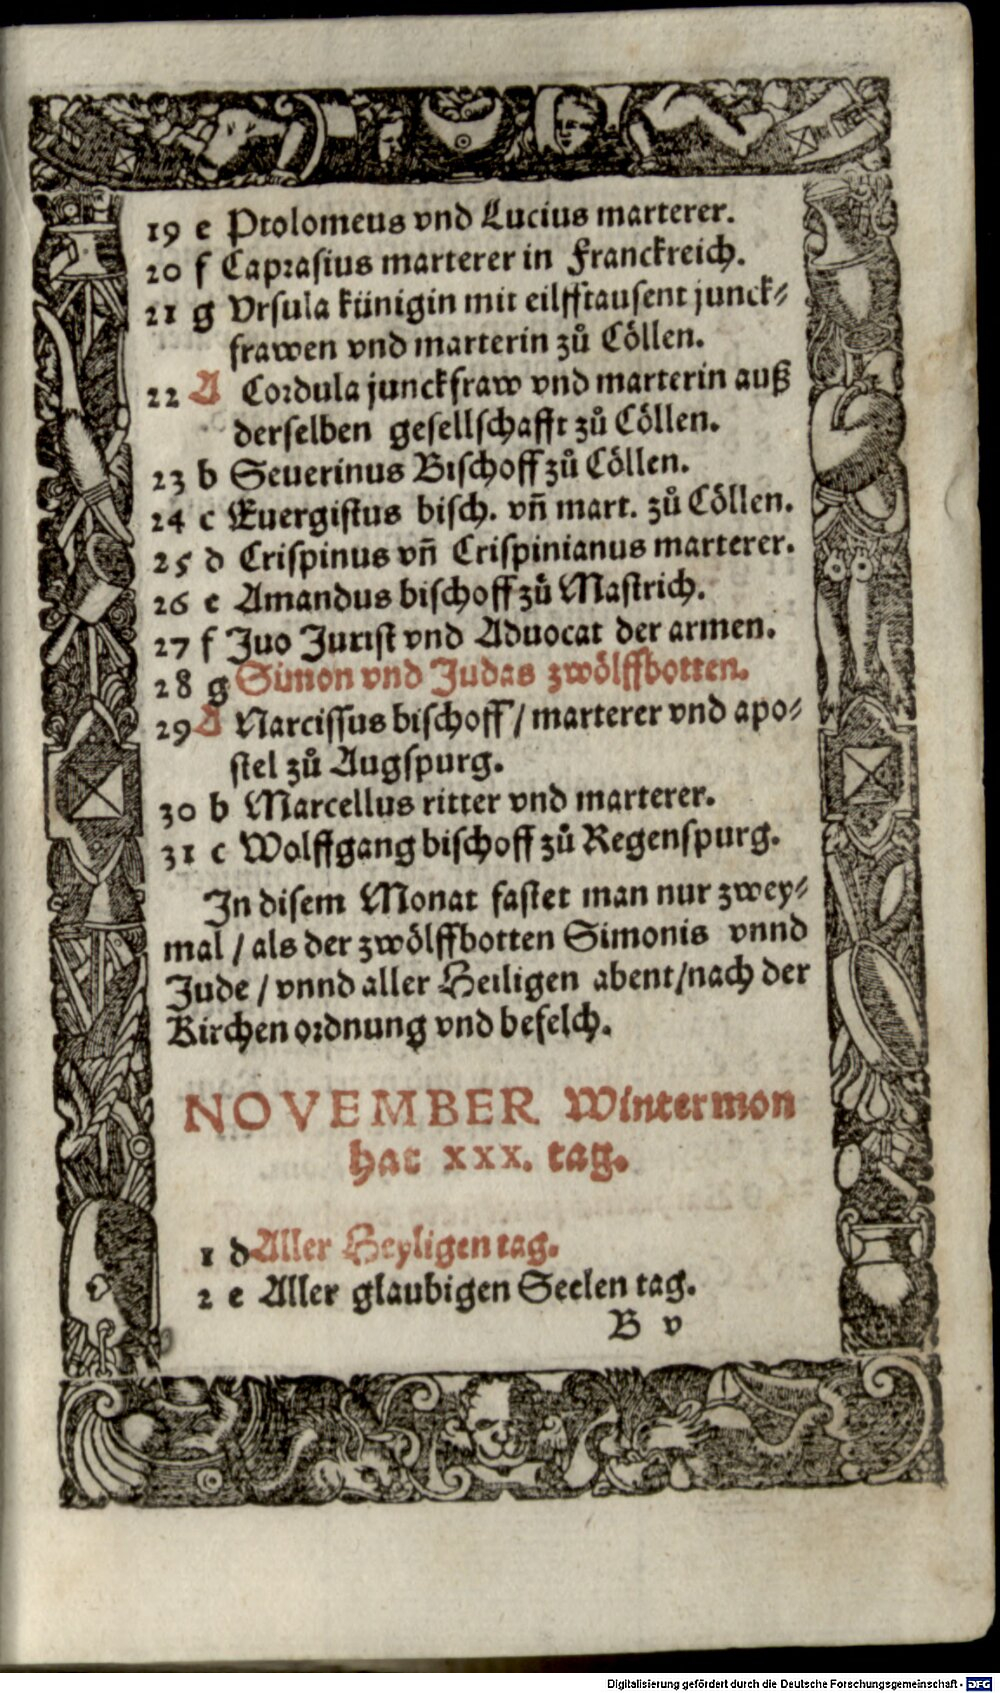 19 e Ptolomeus vnd Lucius marterer.
20 f Caprasius marterer in Franckreich.
21 g Vrsula künigin mit eilfftausent junck⸗
frawen vnd marterin zů Cöllen.
22 A Cordula junckfraw vnd marterin auß
derselben gesellschafft zů Cöllen.
23 b Seuerinus Bischoff zů Cöllen.
24 c Euergistus bisch. vn̄ mart. zů Cöllen.
25 d Crispinus vn̄ Crispinianus marterer.
26 e Amandus bischoff zů Mastrich.
27 f Juo Jurist vnd Aduocat der armen.
28 g Simon vnd Judas zwölffbotten.
29 A Narcissus bischoff / marterer vnd apo⸗
stel zů Augspurg.
30 b Marcellus ritter vnd marterer.
31 c Wolffgang bischoff zů Regenspurg.
In disem Monat fastet man nur zwey⸗
mal / als der zwölffbotten Simonis vnnd
Jude / vnnd aller Heiligen abent / nach der
Kirchen ordnung vnd befelch.
NOVEMBER Wintermon
hat xxx. tag.
1 d Aller Heyligen tag.
2 e Aller glaubigen Seelen tag.
B v
Digitalisierung gefördert durch die Deutsche Forschungsgemeinschaft - DFG